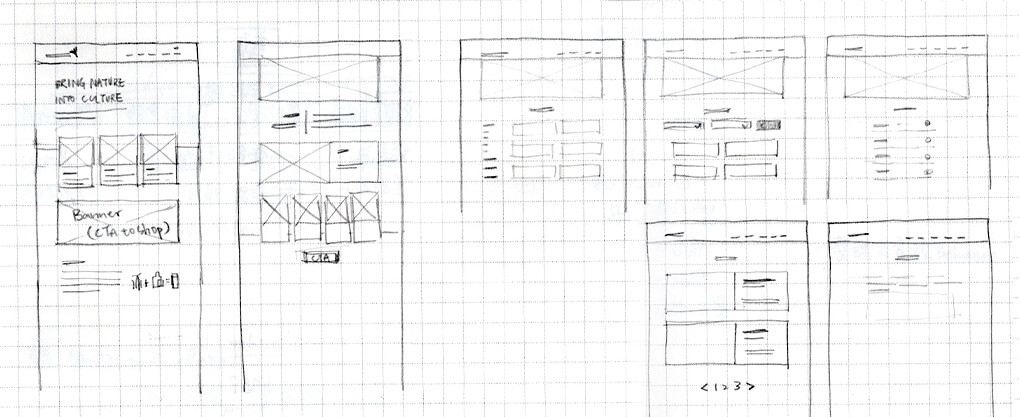 BRING NATURE
INTO CULTURE
Banner
(CTA to shop)
CTA
< 1 2 3 >